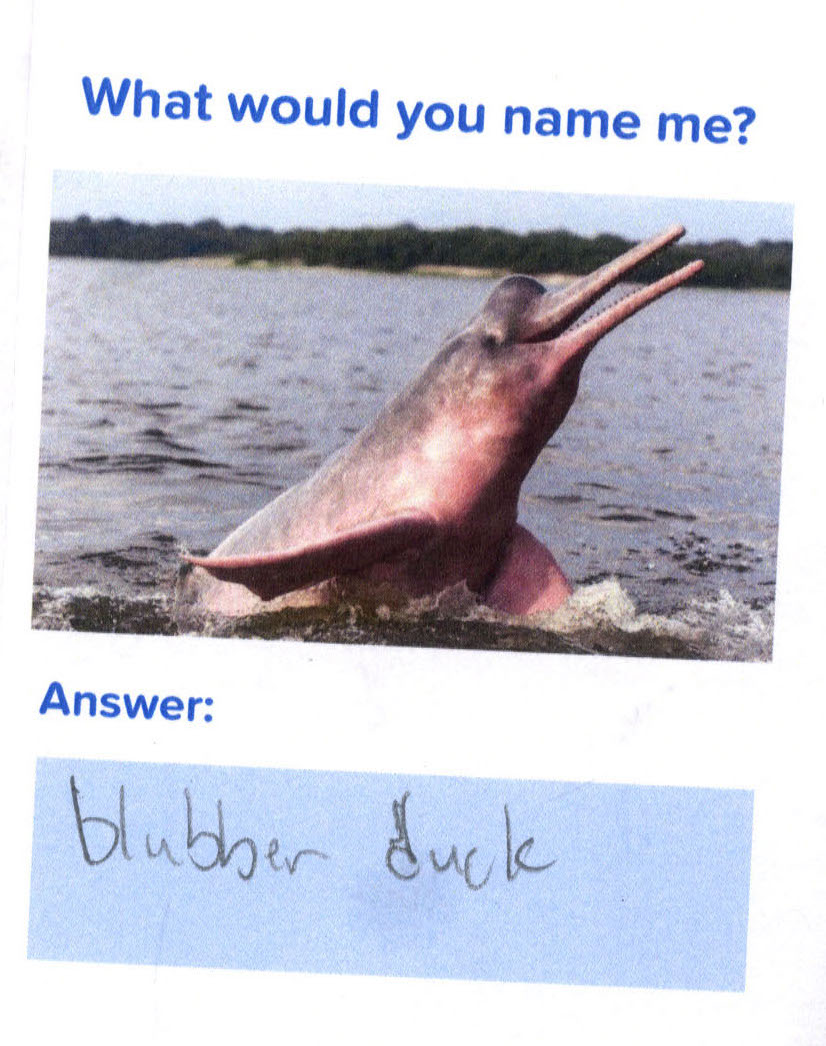 What would you name me?
Answer:
blubber duck